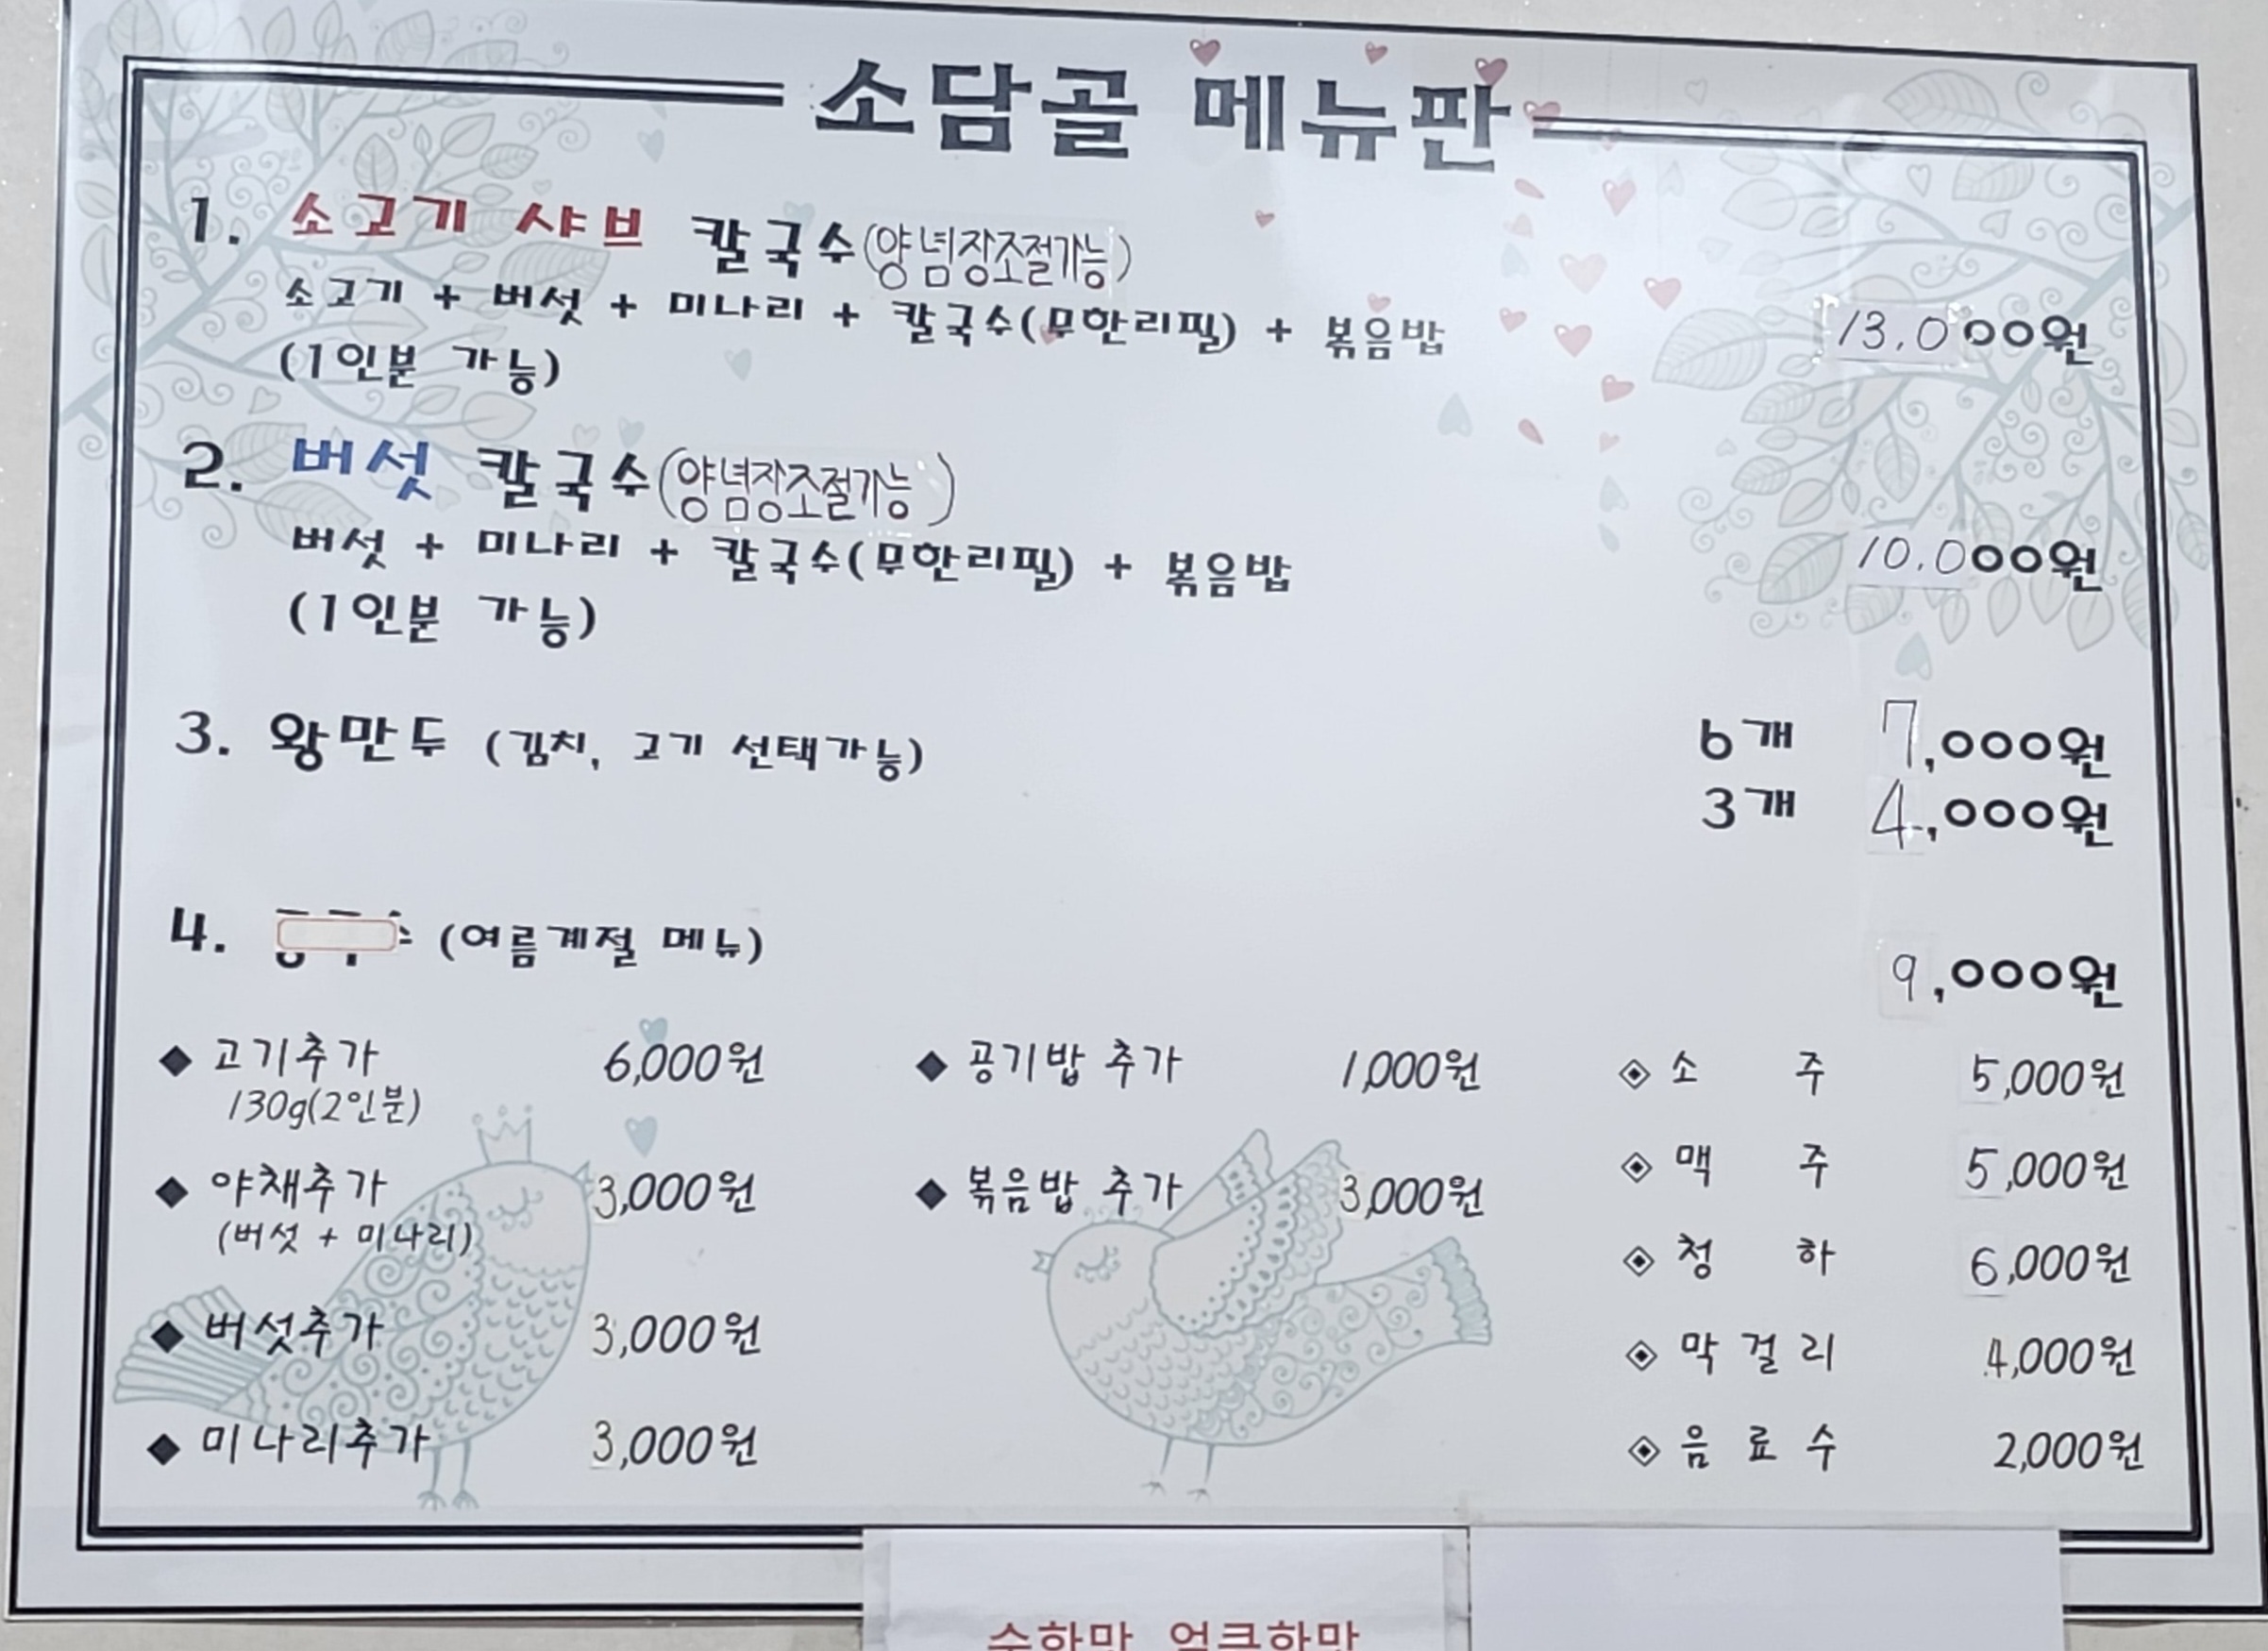 소담골 메뉴판
1. 소고기 샤브 칼국수(양념장조절가능)
소고기 + 버섯 + 미나리 + 칼국수(무한리필) + 볶음밥 13.000원
(1인분 가능)
2. 버섯 칼국수(양념장조절가능)
버섯 + 미나리 + 칼국수(무한리필) + 볶음밥 10.000원
(1인분 가능)
3. 왕만두 (김치, 고기 선택가능) 6개 7,000원
3개 4,000원
4. (여름계절 메뉴) 9,000원
◆ 고기추가 6,000원
130g(2인분)
◆ 야채추가 3,000원
(버섯 + 미나리)
◆ 버섯추가 3,000원
◆ 미나리추가 3,000원
◆ 공기밥 추가 1,000원
◆ 볶음밥 추가 3,000원
◈ 소 주 5,000원
◈ 맥 주 5,000원
◈ 청 하 6,000원
◈ 막걸리 4,000원
◈ 음료수 2,000원